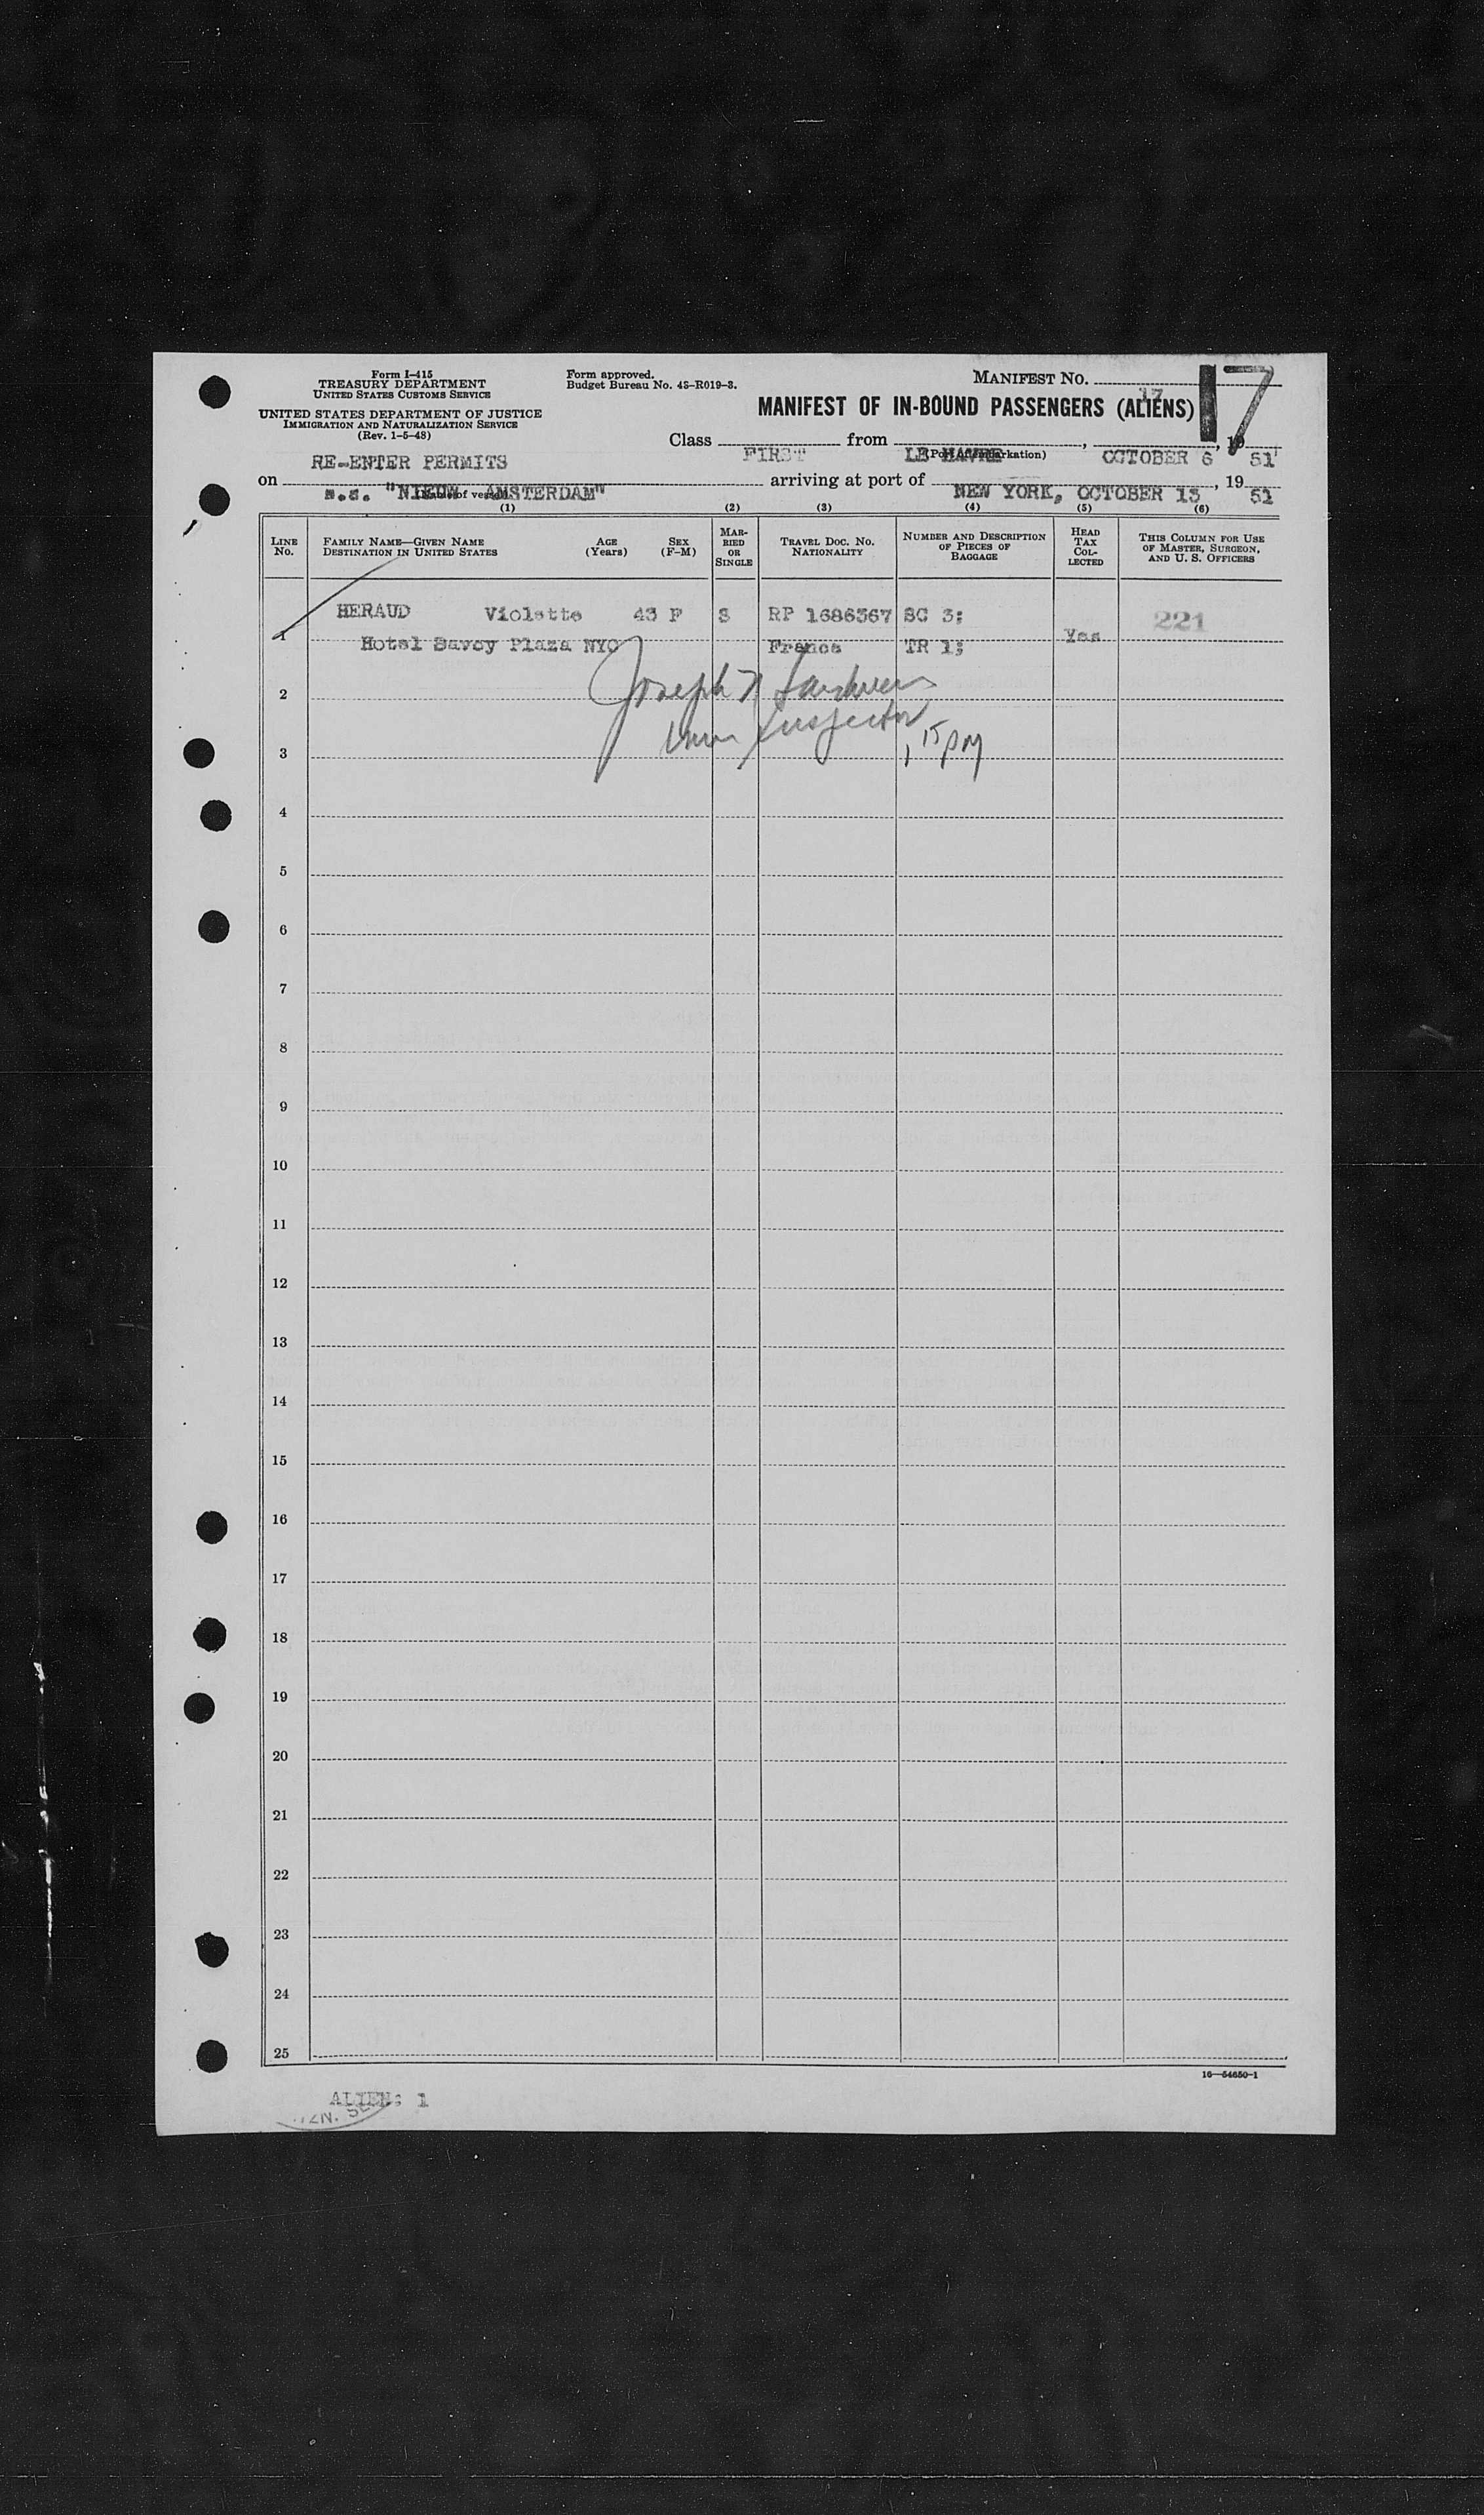 Form I-415
TREASURY DEPARTMENT
UNITED STATES CUSTOMS SERVICE
UNITED STATES DEPARTMENT OF JUSTICE
IMMIGRATION AND NATURALIZATION SERVICE
(Rev. 1-5-48)
Form approved.
Budget Bureau No. 43-R019-3.
MANIFEST NO.
17
17
MANIFEST OF IN-BOUND PASSENGERS (ALIENS)
Class FIRST from LE HAVRE, OCTOBER 6, 1951
(Port of embarkation)
RE-ENTER PERMITS
on s.s. "NIEUW AMSTERDAM" arriving at port of NEW YORK, OCTOBER 13, 1951
(Name of vessel)
(1) (2) (3) (4) (5) (6)
LINE No.
FAMILY NAME—GIVEN NAME
DESTINATION IN UNITED STATES
AGE (Years)
SEX (F-M)
MARRIED OR SINGLE
TRAVEL DOC. NO.
NATIONALITY
NUMBER AND DESCRIPTION OF PIECES OF BAGGAGE
HEAD TAX COLLECTED
THIS COLUMN FOR USE OF MASTER, SURGEON, AND U. S. OFFICERS
1 HERAUD Violette 43 F S RP 1686367 SC 3; Yes 221
Hotel Savoy Plaza NYC France TR 1;
Joseph
Imm Inspector
1 15 PM
2
3
4
5
6
7
8
9
10
11
12
13
14
15
16
17
18
19
20
21
22
23
24
25
16—54650-1
ALIEN: 1